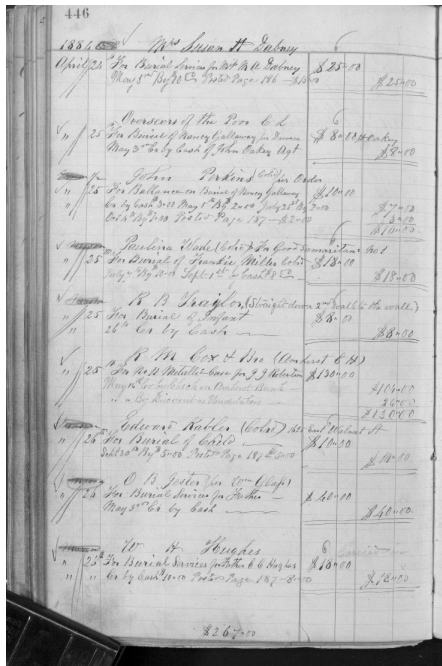 446
1886 Mrs Susan H Dabney 6
April 24 For Burial Services for Mr M A Dabney $25.00
May 3rd By 10 Posted Page 186 $15.00 $25.00
Overseers of the Poor C L 6
" 25 For Burial of Nancy Gallaway for Duncan $8.00 Oakey
May 3rd Cr by Cash of John Oakey Agt $8.00
John Perkins (Cold) per Order
" 25 For Ballance on Burial of Nancy Gallaway $10.00
Cr by Cash 3.00 May 8th By 2.00 July 28th By 2.00 $7.00
Oct 4th By 1.00 Posted Page 187 - $2.00 3.00
$10.00
Paulina Wade (Cold) & For Good Samaritan No 1
" 25 For Burial of Frankie Miller Cold $18.00
July By 10.00 Sept 1st by Cash $8 $18.00
R B Traylor (Straight down 2nd walk to the wall)
" 25 For Burial of Infant $8.00
26th Cr by Cash $8.00
R M Cox & Bro (Amherst C H)
" 25 For No Metallic Case for J J Robertson $130.00
May Cr by Check on Bank $104.00
" " By Discount 26.00
$130.00
Edward Kabler (Cold) 1625 East Walnut St
" 26th For Burial of Child $10.00
Sept 30th By 5.00 Posted Page 187 5.00 $10.00
O B Jester for Wm Glass
" 26 For Burial Services for Father $40.00
May 3rd Cr by Cash $40.00
W H Hughes 6
" 26th For Burial Services for Father C C Hughes $18.00
" " Cr by Cash 10.00 Posted Page 187 - 8.00 $18.00
$267.00